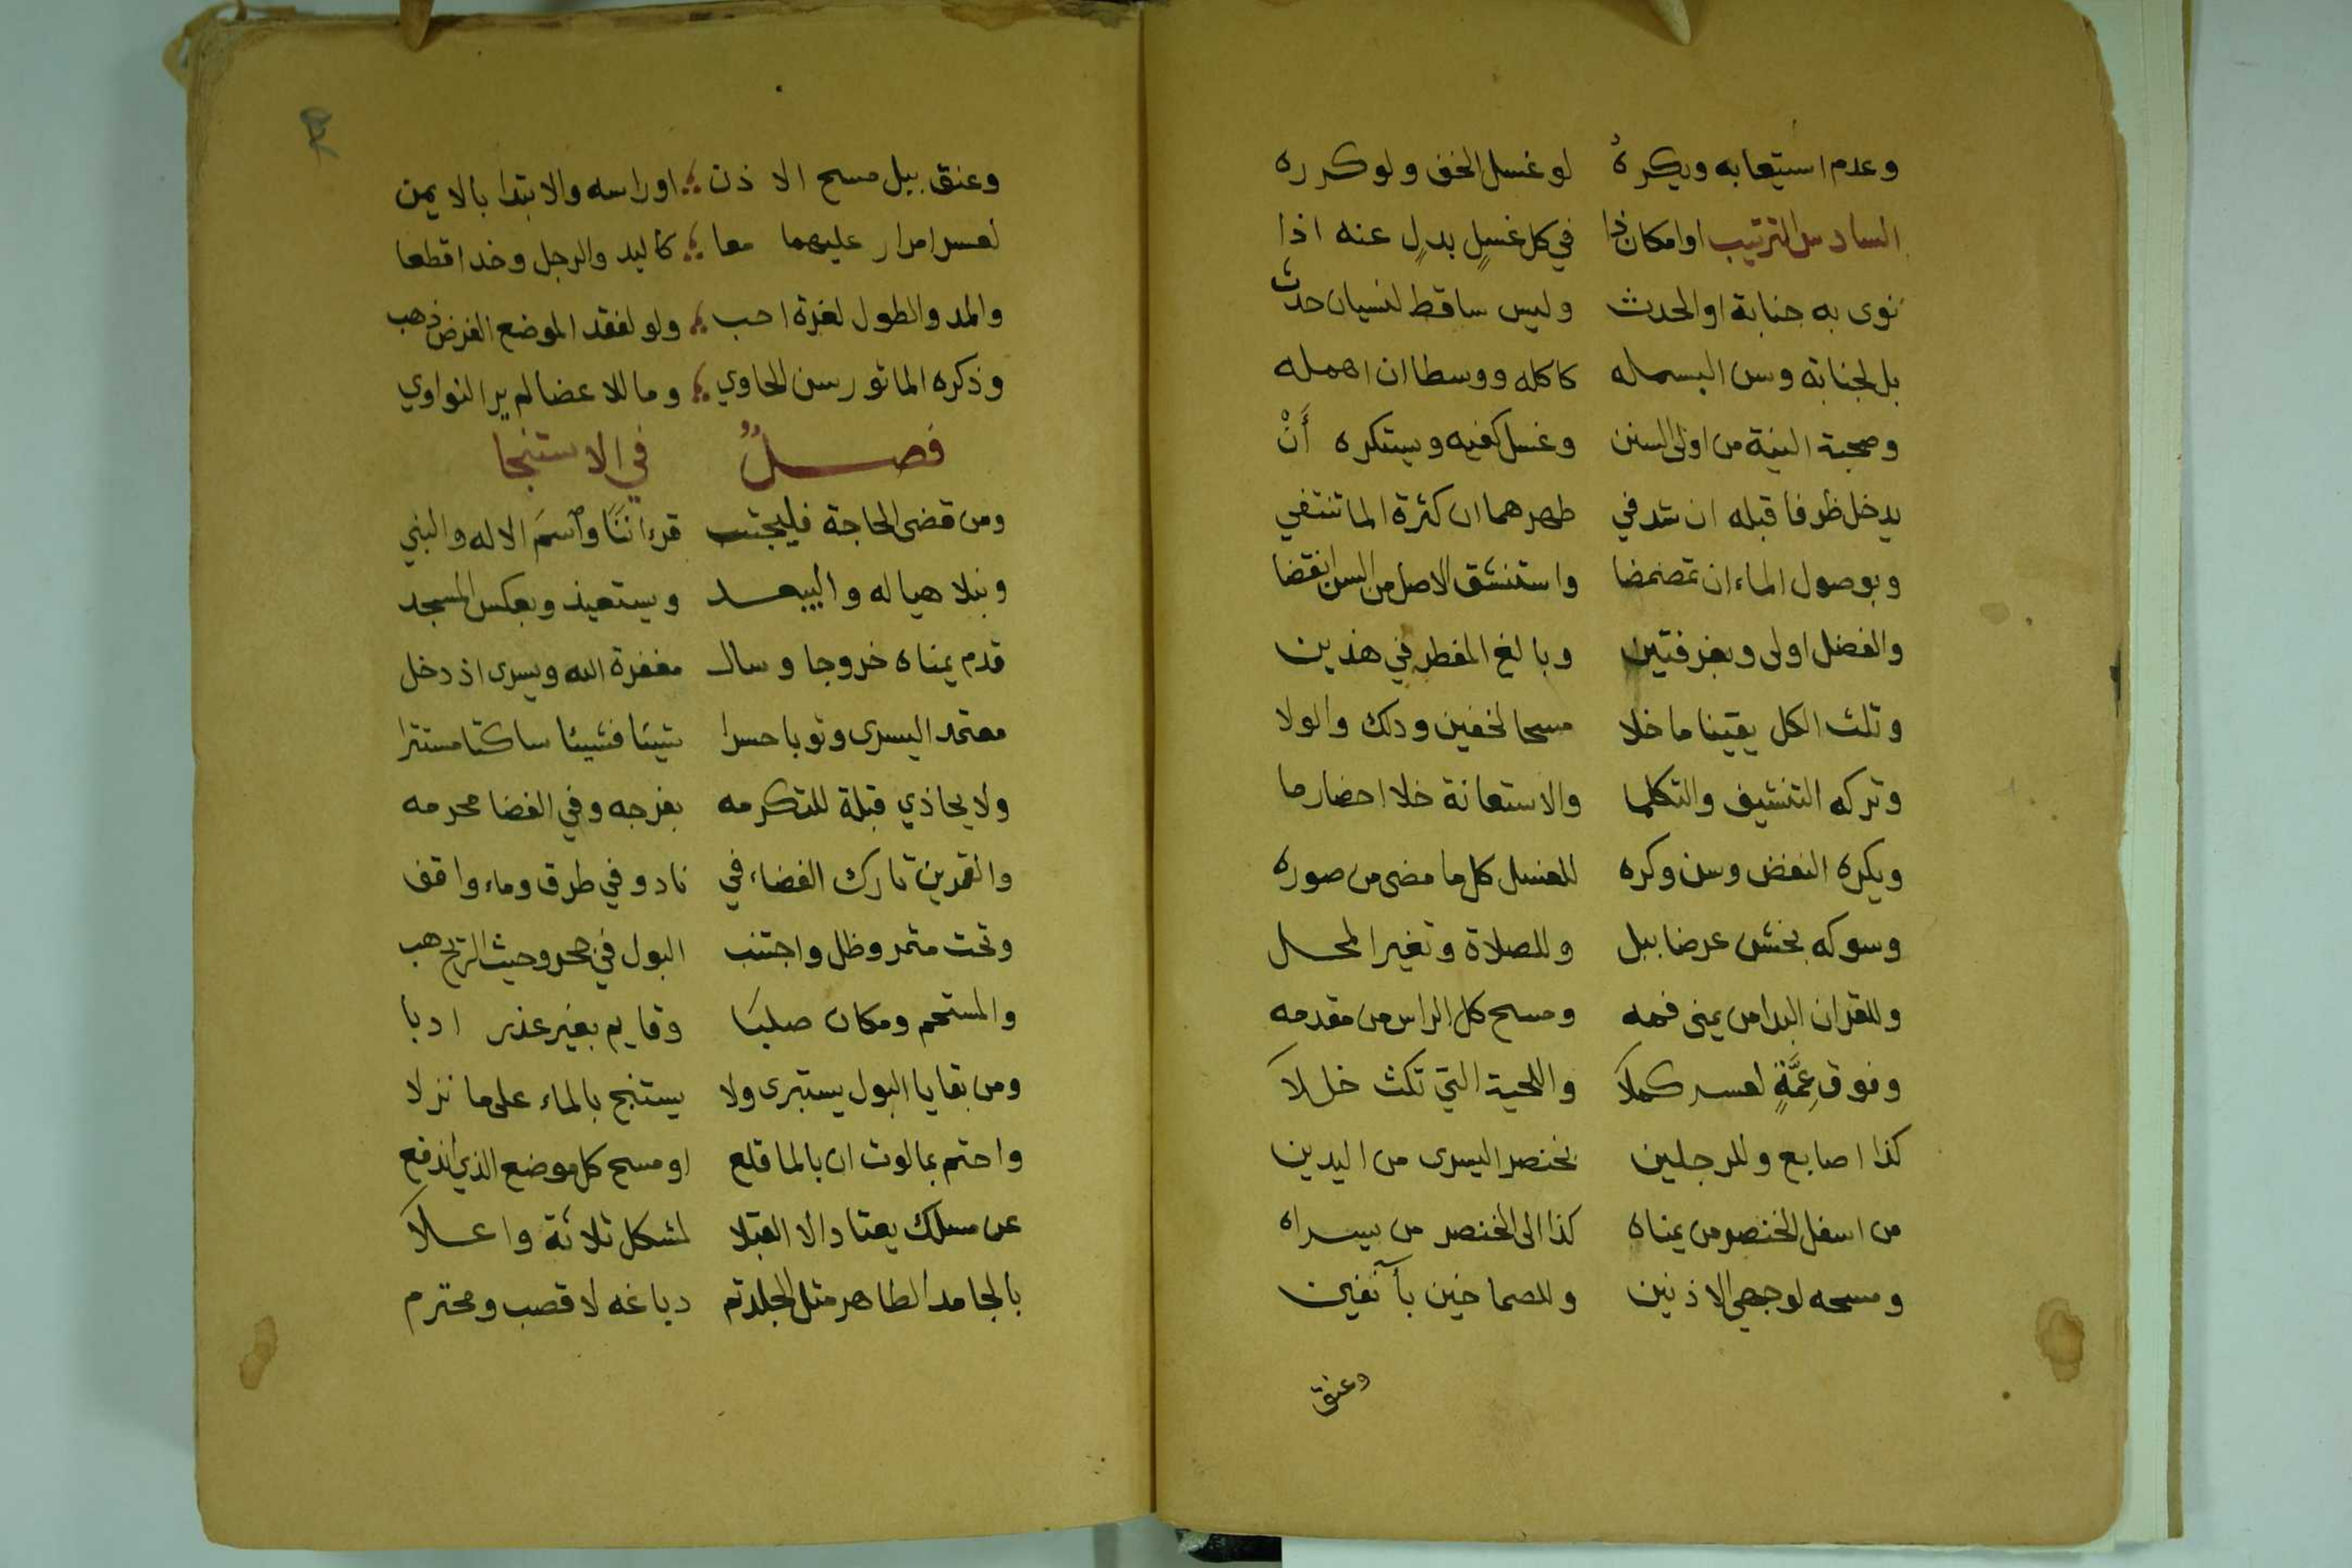 وعدم استيعابه ويكره لو غسل الخف ولو كرره
السادس الترتيب او امكان ذا في كل غسلٍ بدلٍ عنه اذا
نوى به جنابة او الحدث وليس ساقط لنسيان حدث
بل لجنابة وسن البسمله كاكله ووسطا ان اهمله
وصحبة النية من اولى السنن وغسل كفيه ويستكره أَنْ
يدخل ظرفا قبله ان شد في طهرهما ان كثرة الما تنتفي
وبوصول الماء ان تمضمضا واستنشق الاصل من السن انقضا
والفضل اولى وبغرفتين وبالغ المفطر في هذين
وثلث الكل يقينا ما خلا مسحا لخفين ودلك والولا
وتركه التنشيف والتكلما والاستعانة خلا احضار ما
ويكره النفض وسن وكره للغسل كل ما مضى من صوره
وسوكه بخشن عرضا ببل وللصلاة وتغير المحل
وللقران البدا من يمنى فمه ومسح كل الراس من مقدمه
وفوق عِمَّةٍ لعسر كملا واللحية التي تكث خللا
كذا اصابع وللرجلين بخنصر اليسرى من اليدين
من اسفل الخنصر من يمناه كذا الى الخنصر من يسراه
ومسحه لوجهي الاذنين وللصماخين بآنفين
وعنق
وعنق ببل مسح الاذن او راسه والابتدا بالايمن
لعسر امرار عليهما معا كاليد والرجل وخد اقطعا
والمد والطول لغرة احب ولو لفقد الموضع الفرض ذهب
وذكره الماثور سن الحاوي وما للاعضا لم ير النواوي
فصل في الاستنجا
ومن قضى الحاجة فليجتنب قرءاننا واسمَ الاله والنبي
ونبلا هياله وليبعد ويستعيذ وبعكس المسجد
قدم يمناه خروجا وسال مغفرة الله ويسرى اذ دخل
معتمد اليسرى وثوبا حسرا شيئا فشيئا ساكتا مستترا
ولا يحاذي قبلة للتكرمه بفرجه وفي الفضا محرمه
والقمرين تارك الفضاء في ناد وفي طرق وماء واقف
وتحت مثمر وظل واجتنب البول في جحر وحيث الريح هب
والمستحم ومكان صلبا وقايم بغير عذر ادبا
ومن بقايا البول يستبرى ولا يستنج بالماء على ما نزلا
واحتم بما لوث ان بالما قلع او مسح كل موضع الذي اندفع
عن مسلك يعتاد الا القبلا لمشكل ثلاثة واعلا
بالجامد الطاهر مثل الجلد تم دباغه لا قصب ومحترم